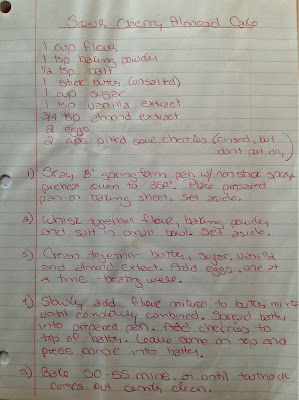 Sour Cherry Almond Cake
1 cup flour
1 tsp baking powder
1/2 tsp salt
1 stick butter (unsalted)
1 cup sugar
1 tsp vanilla extract
3/4 tsp almond extract
2 eggs
2 cups pitted sour cherries (rinsed, but
don't pat dry)
1) Spray 8" springform pan w/ non stick spray
preheat oven to 350°. Place prepared
pan on baking sheet, set aside.
2) Whisk together flour, baking powder
and salt in small bowl. Set aside.
3) Cream together butter, sugar, vanilla
and almond extract. Add eggs, one at
a time - beating well.
4) Slowly add flour mixture to butter mixture
until completely combined. Spread batter
into prepared pan. Add cherries to
top of batter. Leave some on top and
press some into batter.
5) Bake 50-55 mins, or until toothpick
comes out center clean.